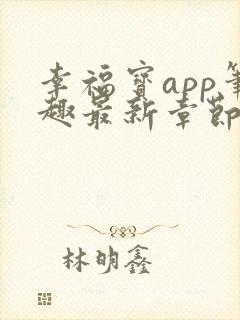 幸福宝app笔
趣最新章节
林明鑫